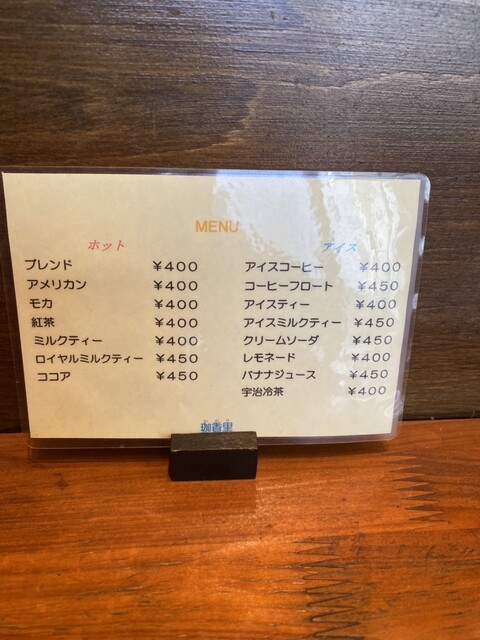 MENU
ホット
ブレンド ¥400
アメリカン ¥400
モカ ¥400
紅茶 ¥400
ミルクティー ¥400
ロイヤルミルクティー ¥450
ココア ¥450
アイス
アイスコーヒー ¥400
コーヒーフロート ¥450
アイスティー ¥400
アイスミルクティー ¥450
クリームソーダ ¥450
レモネード ¥400
バナナジュース ¥450
宇治冷茶 ¥400
珈香里